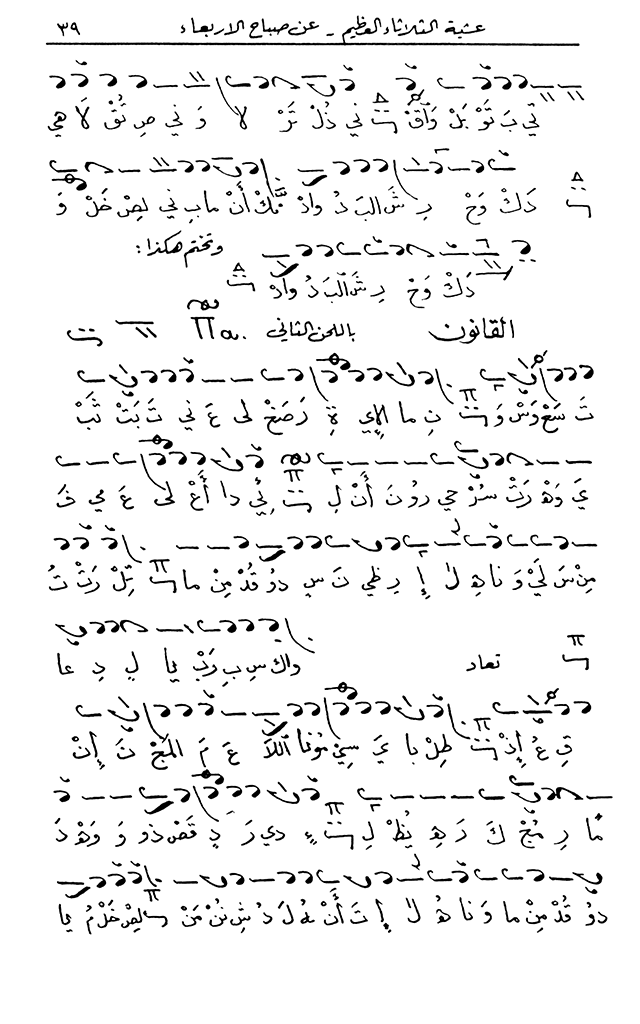 عشية الثلاثاء العظيم - عن صباح الاربعاء ٣٩
تي بَ تَوْ بَلْ وَاقْ ني ذُلْ تَرْ لا وَ ني صِ تُقْ لَا هي
ذَكْ وَحْ رِ شَ البَ دُ وادْ أَنْ ما بِ ني لِصْ خَلْ وَ
وتختم هكذا:
ذَكْ وَحْ رِ شَ البَ دُ وادْ
القانون باللحن الثاني
تَ سَعْ وَسْ وَ نِ ما الإي ةِ رَ صَخْ لى عَ ني تَ بَتْ ثَبْ
يَ وَهْ رَتْ سُرْ حي رو نَ أَنْ لِ ئي دا أَعْ لى عَ مي فَ
مِنْ سَ لَيْ وَ نا هِ لٰ إِ رِ ظي نَ سِ دو قُدْ مِنْ ما تِلْ رَتْ تُ
تعاد واك سِ بِ رَبْ يا لِ دِ عا
قِ عُ إِذْ طِلْ با يَ سيْ نونا اللاَّ عَ مَ المَجْ نَ إِنْ
ما رِ مُجْ كَ رَ هِ يُظْ لِ ءٍ دي رَ دٍ قَصْ ذو وَ وَهْ دَ
دو قُدْ مِنْ ما وَ نا هُ لٰ إِ تَ أَنْ هُ لَ دُ شِ نُنْ مَنْ لِصْ خَلْ مُ يا